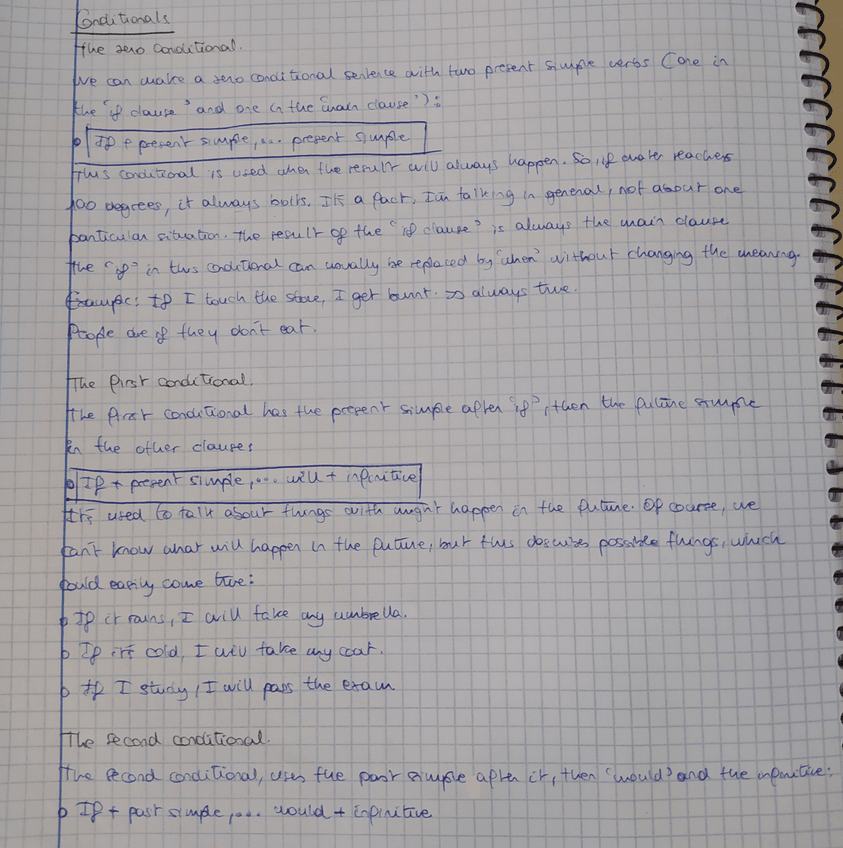 Conditionals
The zero conditional.
We can make a zero conditional sentence with two present simple verbs (one in
the "if clause" and one in the "main clause"):
If + present simple,... present simple
This conditional is used when the result will always happen. So, if water reaches
100 degrees, it always boils. It's a fact, I'm talking in general, not about one
particular situation. The result of the "if clause" is always the main clause
The "if" in this conditional can usually be replaced by "when" without changing the meaning.
Example: If I touch the stove, I get burnt. → always true.
People die if they don't eat.
The first conditional.
The first conditional has the present simple after "if", then the future simple
in the other clause:
If + present simple,... will + infinitive
It's used to talk about things with might happen in the future. Of course, we
can't know what will happen in the future, but this describes possible things, which
could easily come true:
If it rains, I will take my umbrella.
If it's cold, I will take my coat.
If I study, I will pass the exam
The second conditional.
The second conditional, uses the past simple after it, then 'would' and the infinitive:
If + past simple,... would + infinitive